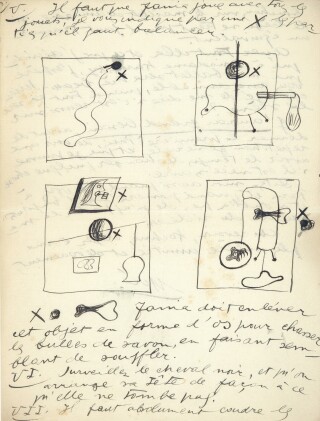 V. Il faut que Tania joue avec tous les
jouets, je vous indique par une X les par
ties qu'il faut balancer.
X
X
X
X
X
X Tania doit enlever
cet objet en forme d'os pour chasser
les bulles de savon, en faisant sem
blant de souffler.
VI. Surveiller le cheval noir, et qu'on
arrange sa tête de façon à ce
qu'elle ne tombe pas.
VII. Il faut absolument coudre la